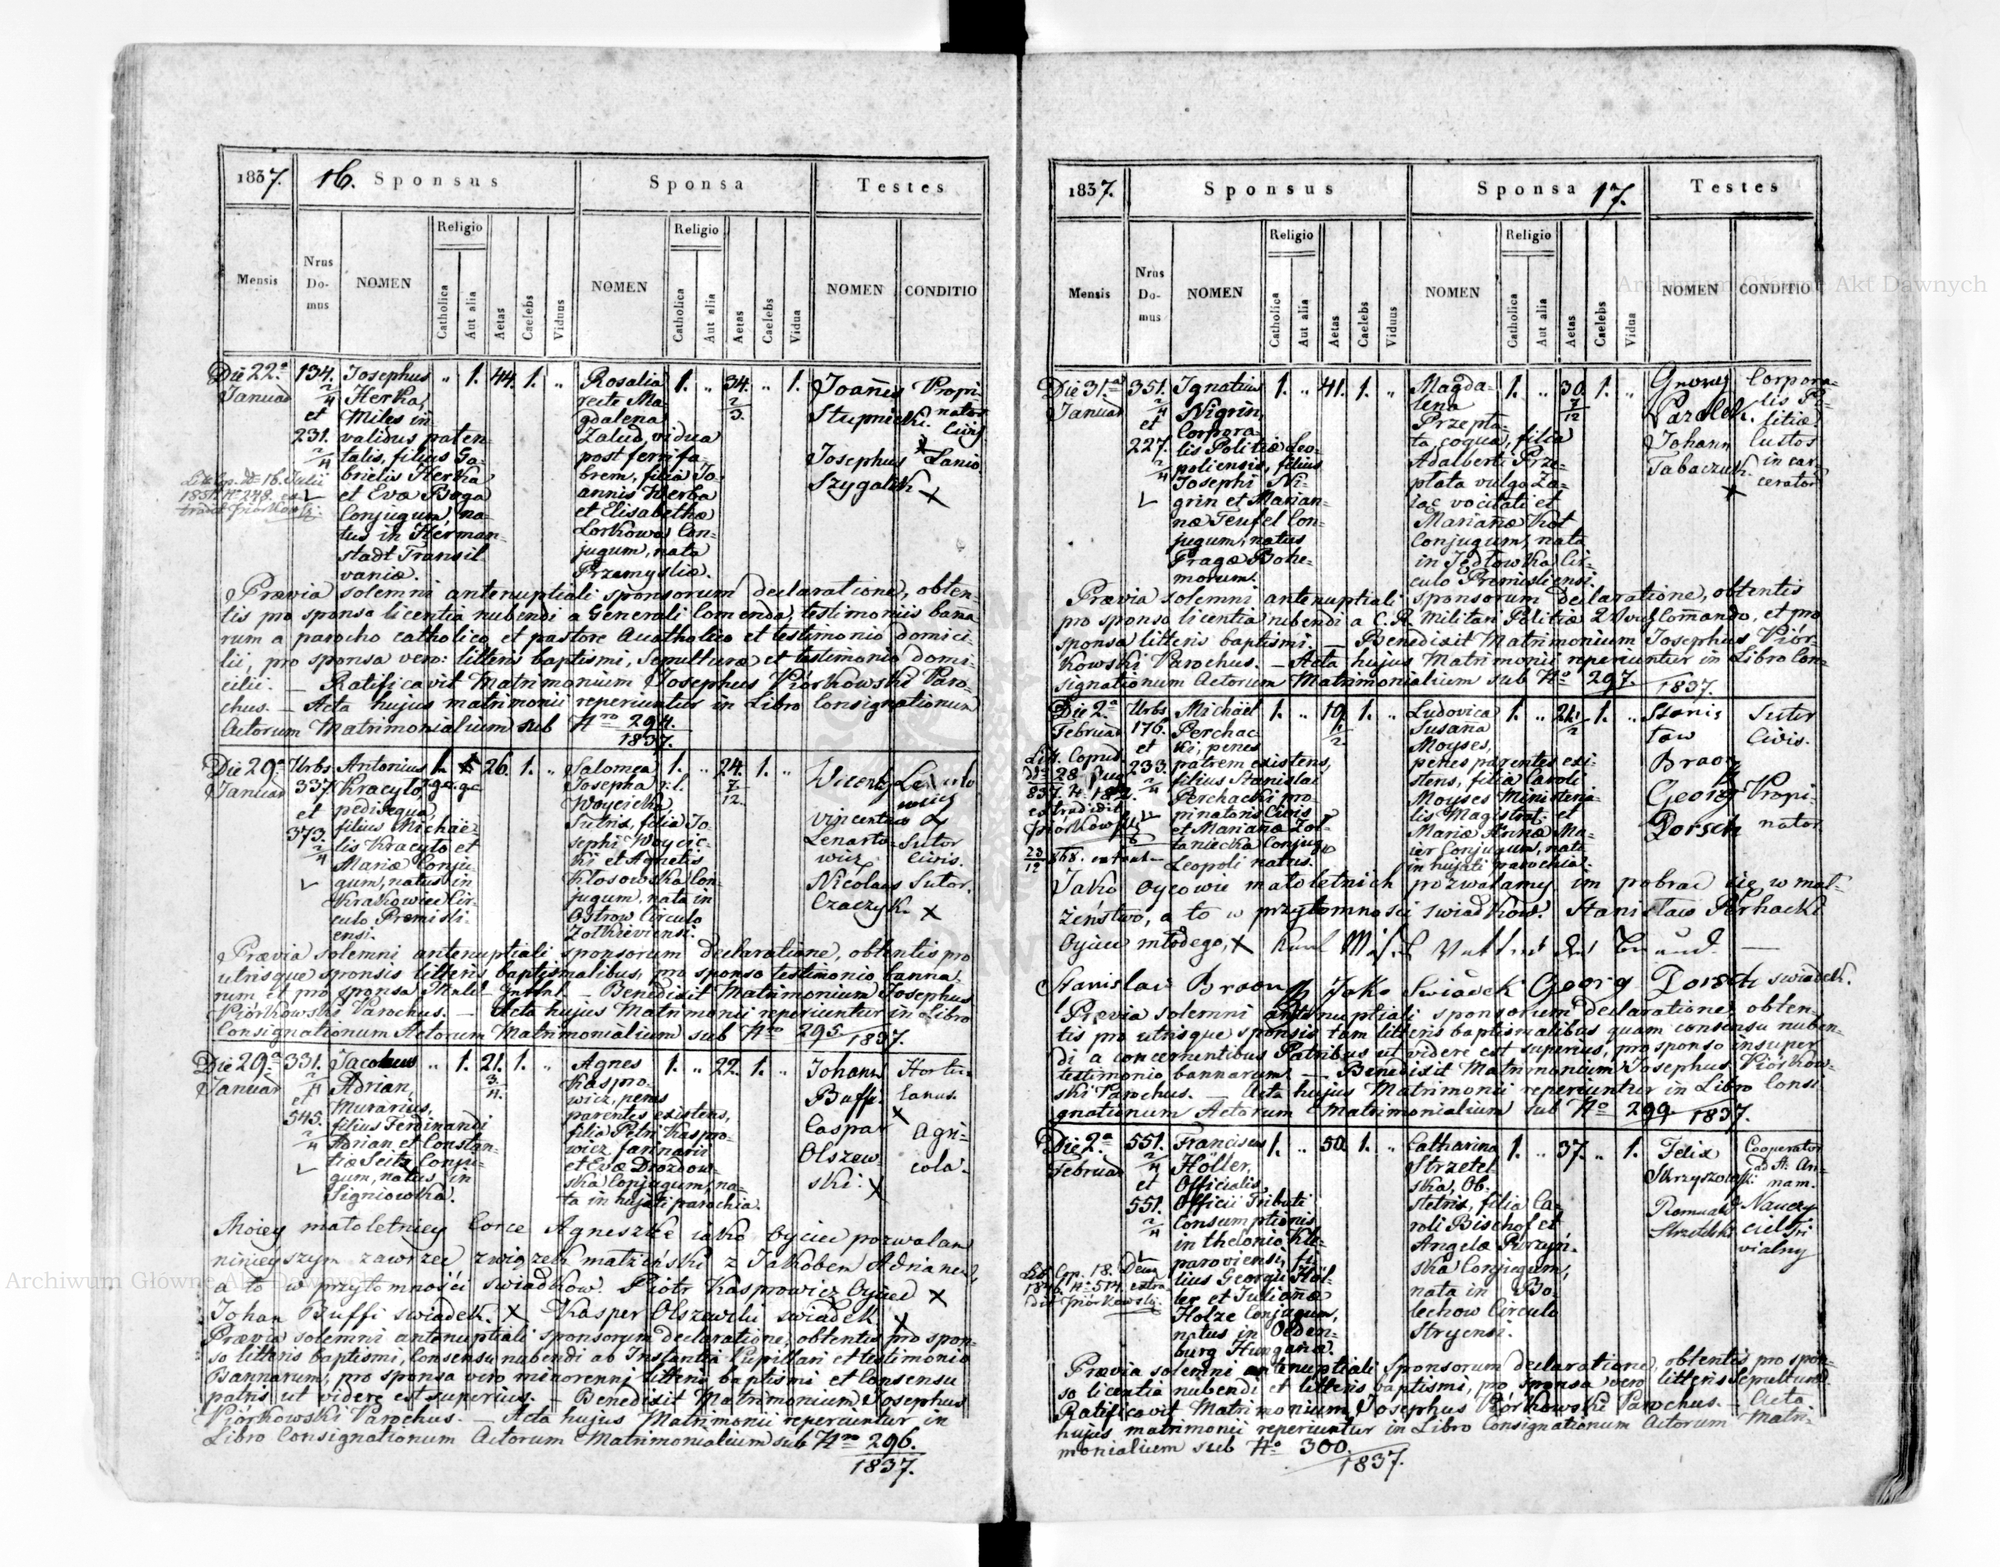 1837. 16. Sponsus Sponsa Testes
Mensis Nrus Do- mus NOMEN Religio Catholica Aut alia Aetas Caelebs Viduus NOMEN Religio Catholica Aut alia Aetas Caelebs Vidua NOMEN CONDITIO
Die 22.a Januar
134. 2/4 et 231. 2/4
Josephus
Herka,
Miles in
validus paten-
talis, filius Ga-
brielis Herka
et Evæ Boga
Conjugum, na-
tus in Herman-
stadt Transil
vaniæ.
" 1. 44. 1. "
Rosalia
recte Ma-
gdalena
Zalud, vidua
post ferrifa-
brem, filia Jo-
annis Werba
et Elisabethæ
Lorkowa Con-
jugum, nata
Przemysliæ.
1. " 34. 2/3. " 1.
Joannes
Stupnicki.
Propi-
nator
Civis
Josephus
Szygalik x
Lanio
Prævia solemni antenuptiali sponsorum declaratione, obten-
tis pro sponso licentia nubendi a Generali Comenda, testimoniis banna-
rum a parocho catholico et pastore Acatholico et testimonio domici-
lii, pro sponsa vero: litteris baptismi, Sepulturæ et testimonio domi-
cilii. — Ratificavit Matrimonium Josephus Piórkowski Paro-
chus. — Acta hujus matrimonii reperiuntur in Libro Consignationum
Actorum Matrimonialium sub Nro 294.
1837.
Die 29.a Januar
Urbs 337 et 373. 2/4
Antonius
Kracyło
pedisequa,
filius Michaë-
lis Kracyło et
Mariæ Conju-
gum, natus in
Krakowiec Cir-
culo Premisli
ensi.
26. 1. "
Salomea
Josepha
Woycicka
Sutrix, filia Jo-
sephi Woycic-
ki et Agnetis
Kłosowska Con-
jugum, nata in
Ostrow Circulo
Zolkieviensi.
1. " 24. 7/12. 1. "
Vincentius
Lenarto-
wicz
Sutor
Civis.
Nicolaus
Czaczyk. x
Sutor.
Prævia solemni antenuptiali sponsorum declaratione, obtentis pro
utrisque sponsis litteris baptismalibus, pro sponso testimonio banna-
rum, et pro sponsa — Benedixit Matrimonium Josephus
Piórkowski Parochus. — Acta hujus Matrimonii reperiuntur in Libro
Consignationum Actorum Matrimonialium sub Nro 295 1837.
Die 29.a Januar
331. 2/4 et 545. 2/4
Jacobus
Adrian,
Murarius,
filius Ferdinandi
Adrian et Constan-
tiæ Seitz Conju-
gum, natus in
Signiowka.
" 1. 21. 3/4. 1. "
Agnes
Kaspro-
wicz, penes
parentes existens,
filia Petri Kaspro-
wicz
et Evæ Drozdow-
ska Conjugum, na-
ta in hujati parochia.
1. " 22. 1. "
Johann
Buffi. x
Hortu-
lanus.
Caspar
Olszew-
ski. x
Agri-
cola.
Moiey małoletniey Corce Agneszke iako Oyciec pozwalam
ninieyszym zawrzec związek małżeński z Jakobem Adrianem,
a to w przytomności świadkow. Piotr Kasprowicz Oyciec x
Johan Buffi swiadek. x Kasper Olszewski swiadek x
Prævia solemni antenuptiali sponsorum declaratione, obtentis pro spon-
so litteris baptismi, Consensu nubendi ab Instantia Pupillari et testimonio
Bannarum, pro sponsa vero minorenni litteris baptismi et Consensu
patris ut videre est superius. — Benedixit Matrimonium Josephus
Piórkowski Parochus. — Acta hujus Matrimonii reperiuntur in
Libro Consignationum Actorum Matrimonialium sub Nro 296.
1837.
1837. Sponsus Sponsa 17. Testes
Mensis Nrus Do- mus NOMEN Religio Catholica Aut alia Aetas Caelebs Viduus NOMEN Religio Catholica Aut alia Aetas Caelebs Vidua NOMEN CONDITIO
Die 31.a Januar
351. 2/4 et 227. 2/4
Ignatius
Nigrin,
Corpora-
lis Politiæ Leo-
poliensis, filius
Josephi Ni-
grin et Marian-
næ Teufel Con-
jugum, natus
Pragæ Bohe-
morum.
1. " 41. 1. "
Magda-
lena
Przepta-
ta, coqua, filia
Adalberti Prze-
ptata vulgo Za-
jąc vocitati et
Marianæ Kot
Conjugum, nata
in Jedłowka Cir-
culo Premisliensi.
1. " 30. 7/12 1. "
Corpora-
lis Po-
litiæ
Johann
Tabaczuk. x
Custos
in car-
cerator
Prævia solemni antenuptiali sponsorum declaratione, obtentis
pro sponso licentia nubendi a C. R. Militari Politiæ Comando, et pro
sponsa litteris baptismi. — Benedixit Matrimonium Josephus Piór-
kowski Parochus. — Acta hujus Matrimonii reperiuntur in Libro Con-
signationum Actorum Matrimonialium sub No 297. 1837.
Die 2.a Februar
Urbs 176. et 233. 2/4
Michäel
Perchac
ki, penes
patrem existens,
filius Stanislai
Perchacki pro-
pinatoris Civis
et Marianæ
Conjug
Leopoli natus.
1. " 19. 1/2 1. "
Ludovica
Susana
Moyses,
penes parentes exi-
stens, filia Caroli
Moyses Ministeria-
lis Magistrat. et
Mariæ Annæ Ma-
ier Conjugum, nata
in hujati parochia.
1. " 21. 1/2 1. "
Stanis
law
Braon
Sutor
Civis.
Georg
Dorsch
Propi-
nator
Jako Oycowie małoletnich pozwalamy im pobrać się w mał-
żeństwo, a to w przytomności świadków. Stanisław Perhacki
Oyciec młodego, x
Stanislaw Braon Jako Swiadek Georg Dorsch swiadek.
Prævia solemni antenuptiali sponsorum declaratione, obten-
tis pro utrisque sponsis tam litteris baptismalibus quam consensu nuben-
di a concernentibus Patribus ut videre est superius, pro sponso insuper
testimonio bannarum. — Benedixit Matrimonium Josephus Piórkow-
ski Parochus. — Acta hujus Matrimonii reperiuntur in Libro Consi-
gnationum Actorum Matrimonialium sub No 299. 1837.
Die 2.a Februar
551. 2/4 et 551. 2/4
Franciscus
Höller,
Officialis
Officii Tributi
Consumptionis
in thelonio Kle-
paroviensi, fi-
lius Georgii Höl-
ler et Julianæ
Holze Conjugum,
natus in Oeden-
burg Hungariæ.
1. " 50. 1. "
Catharina
Strzetel
ska, Ob-
stetrix, filia Ca-
roli Bischof et
Angelæ Purzyń-
ska Conjugum,
nata in Bo-
lechow Circulo
Stryensi.
1. " 37. " 1.
Felix
Skrzyszowski
Cooperator
ad St. An-
nam.
Romuald
Strzetelski
Nauczy-
ciel Tri
vialny
Prævia solemni antenuptiali Sponsorum declaratione, obtentis pro spon-
so licentia nubendi et litteris baptismi, pro sponsa vero litteris Sepulturæ.
Ratificavit Matrimonium Josephus Piórkowski Parochus. — Acta
hujus matrimonii reperiuntur in Libro Consignationum Actorum Matri-
monialium sub No 300.
1837.
Archiwum Główne Akt Dawnych
Archiwum Główne Akt Dawnych